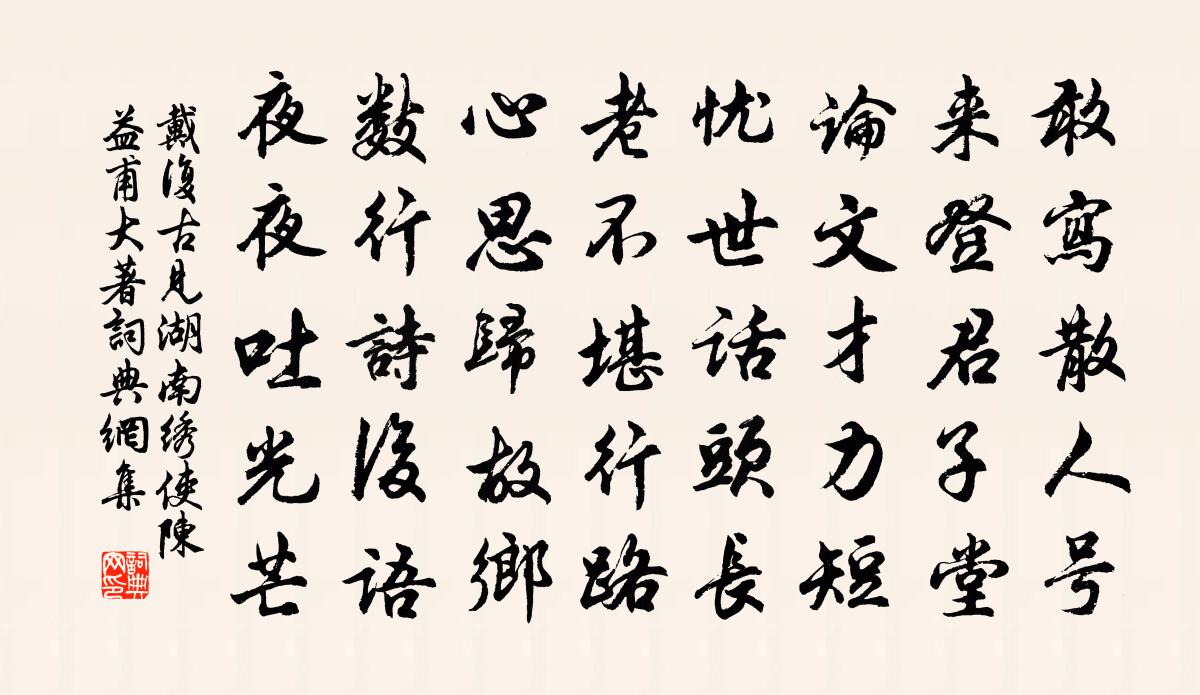 敢寫散人号
来登君子堂
論文才力短
忧世話頭長
老不堪行路
心思歸故鄉
数行詩後語
夜夜吐光芒
戴復古見湖南绣使陳
益甫大著詞典網集
詞典
网印